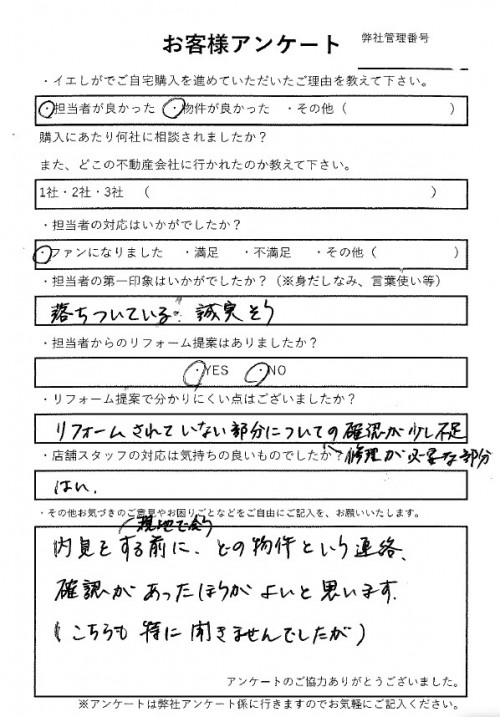 お客様アンケート
弊社管理番号
・イエしがでご自宅購入を進めていただいたご理由を教えて下さい。
・担当者が良かった ・物件が良かった ・その他（ ）
購入にあたり何社に相談されましたか？
また、どこの不動産会社に行かれたのか教えて下さい。
1社・2社・3社 （ ）
・担当者の対応はいかがでしたか？
・ファンになりました ・満足 ・不満足 ・その他（ ）
・担当者の第一印象はいかがでしたか？（※身だしなみ、言葉使い等）
落ちついている。誠実そう
・担当者からのリフォーム提案はありましたか？
・YES ・NO
・リフォーム提案で分かりにくい点はございましたか？
リフォームされていない部分についての確認が少し不足
・店舗スタッフの対応は気持ちの良いものでしたか
修理が必要な部分
はい、
・その他お気づきのご意見やお困りごとなどをご自由にご記入を、お願いいたします。
現地で会う
内見をする前に、どの物件という連絡、
確認があったほうがよいと思います。
（こちらも特に聞きませんでしたが）
アンケートのご協力ありがとうございました。
※アンケートは弊社アンケート係に行きますのでお気軽にご記入ください。